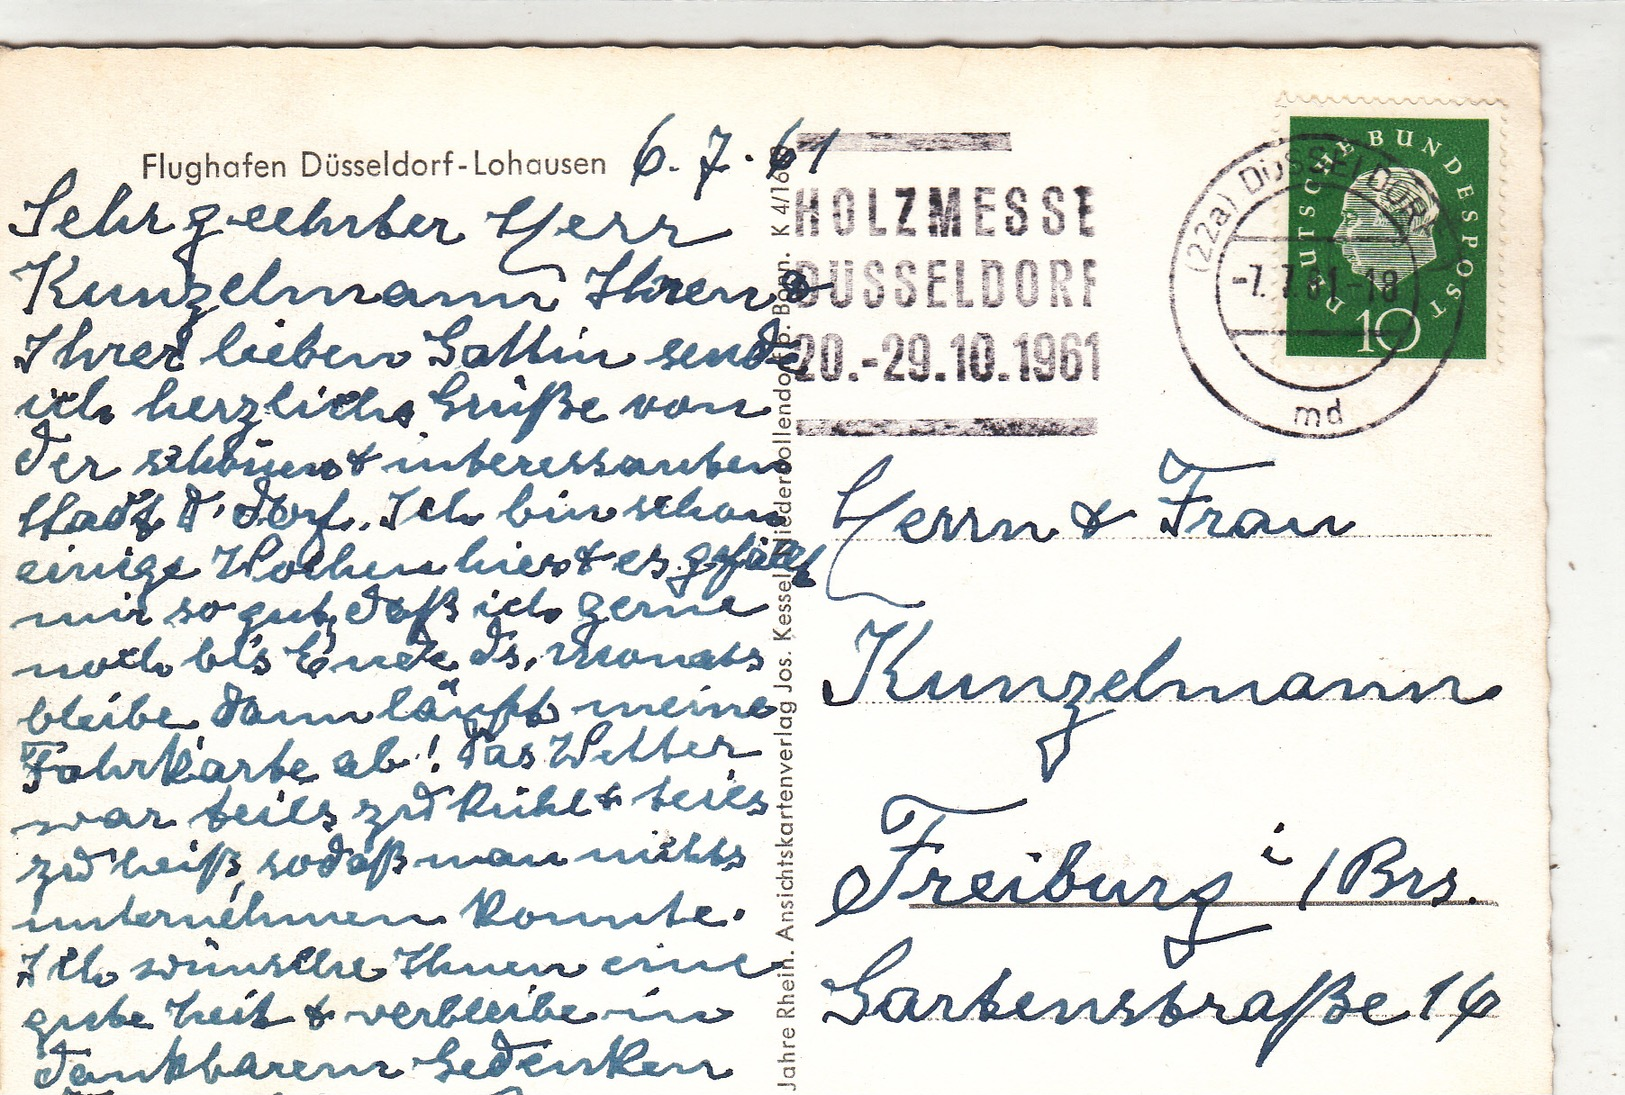 Flughafen Düsseldorf-Lohausen
6.7.61
Sehr geehrter Herr
Kunzelmann Ihnen &
Ihrer lieben Gattin sende
ich herzliche Grüße von
der schönen & interessanten
Stadt D'dorf. Ich bin schon
einige Wochen hier & es gefällt
mir so gut, daß ich gerne
noch bis Ende ds. Monats
bleibe dann läuft meine
Fahrkarte ab! Das Wetter
war teils zu kühl & teils
zu heiß, sodaß man nichts
unternehmen konnte.
Ich wünsche Ihnen eine
gute Zeit & verbleibe in
dankbarem Gedenken
Jahre Rhein. Ansichtskartenverlag Jos. Kessel, Niederdollendorf b. Bonn. K 4/16
HOLZMESSE
DÜSSELDORF
20.-29.10.1961
(22a) DÜSSELDORF
-7.7.61-18
md
DEUTSCHE BUNDESPOST
10
Herrn & Frau
Kunzelmann
Freiburg i/Brs.
Gartenstraße 16